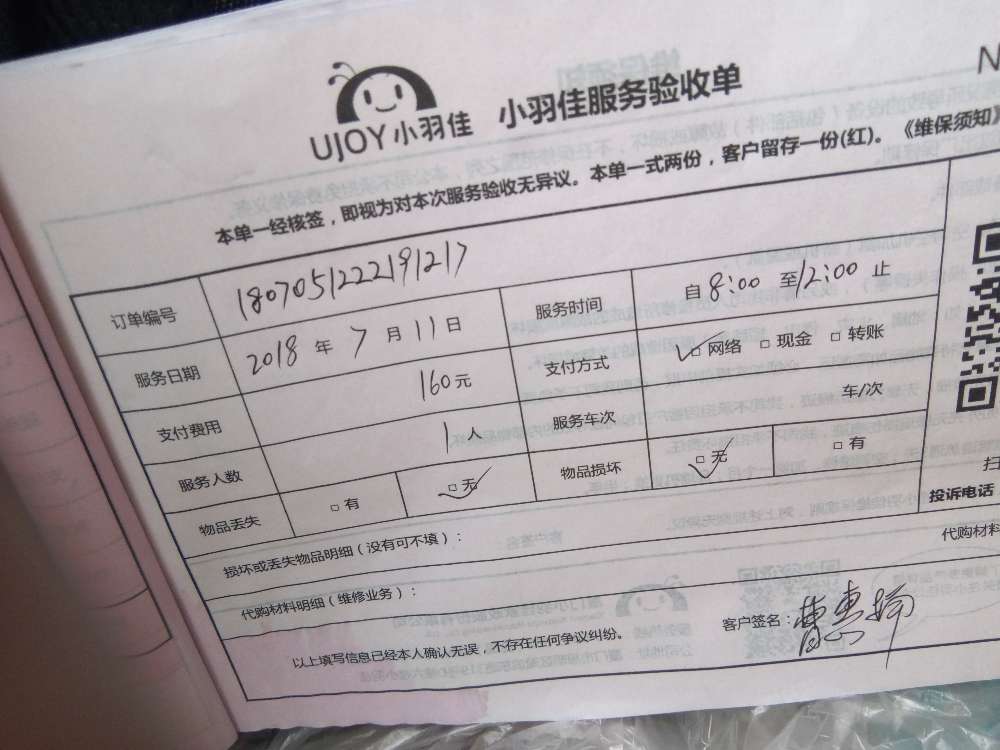 N
UJOY小羽佳 小羽佳服务验收单
本单一经核签，即视为对本次服务验收无异议。本单一式两份，客户留存一份(红)。《维保须知》
订单编号 1807051222191217 服务时间 自 8:00 至 12:00 止
服务日期 2018 年 7 月 11 日 支付方式 ✓□ 网络 □ 现金 □ 转账
支付费用 160元 服务车次 车/次
服务人数 1 人 物品损坏 □ 无 ✓ □ 有
物品丢失 □ 有 □ 无 ✓
扫
投诉电话
损坏或丢失物品明细（没有可不填）：
代购材料
代购材料明细（维修业务）：
以上填写信息已经本人确认无误，不存在任何争议纠纷。 客户签名：曹惠